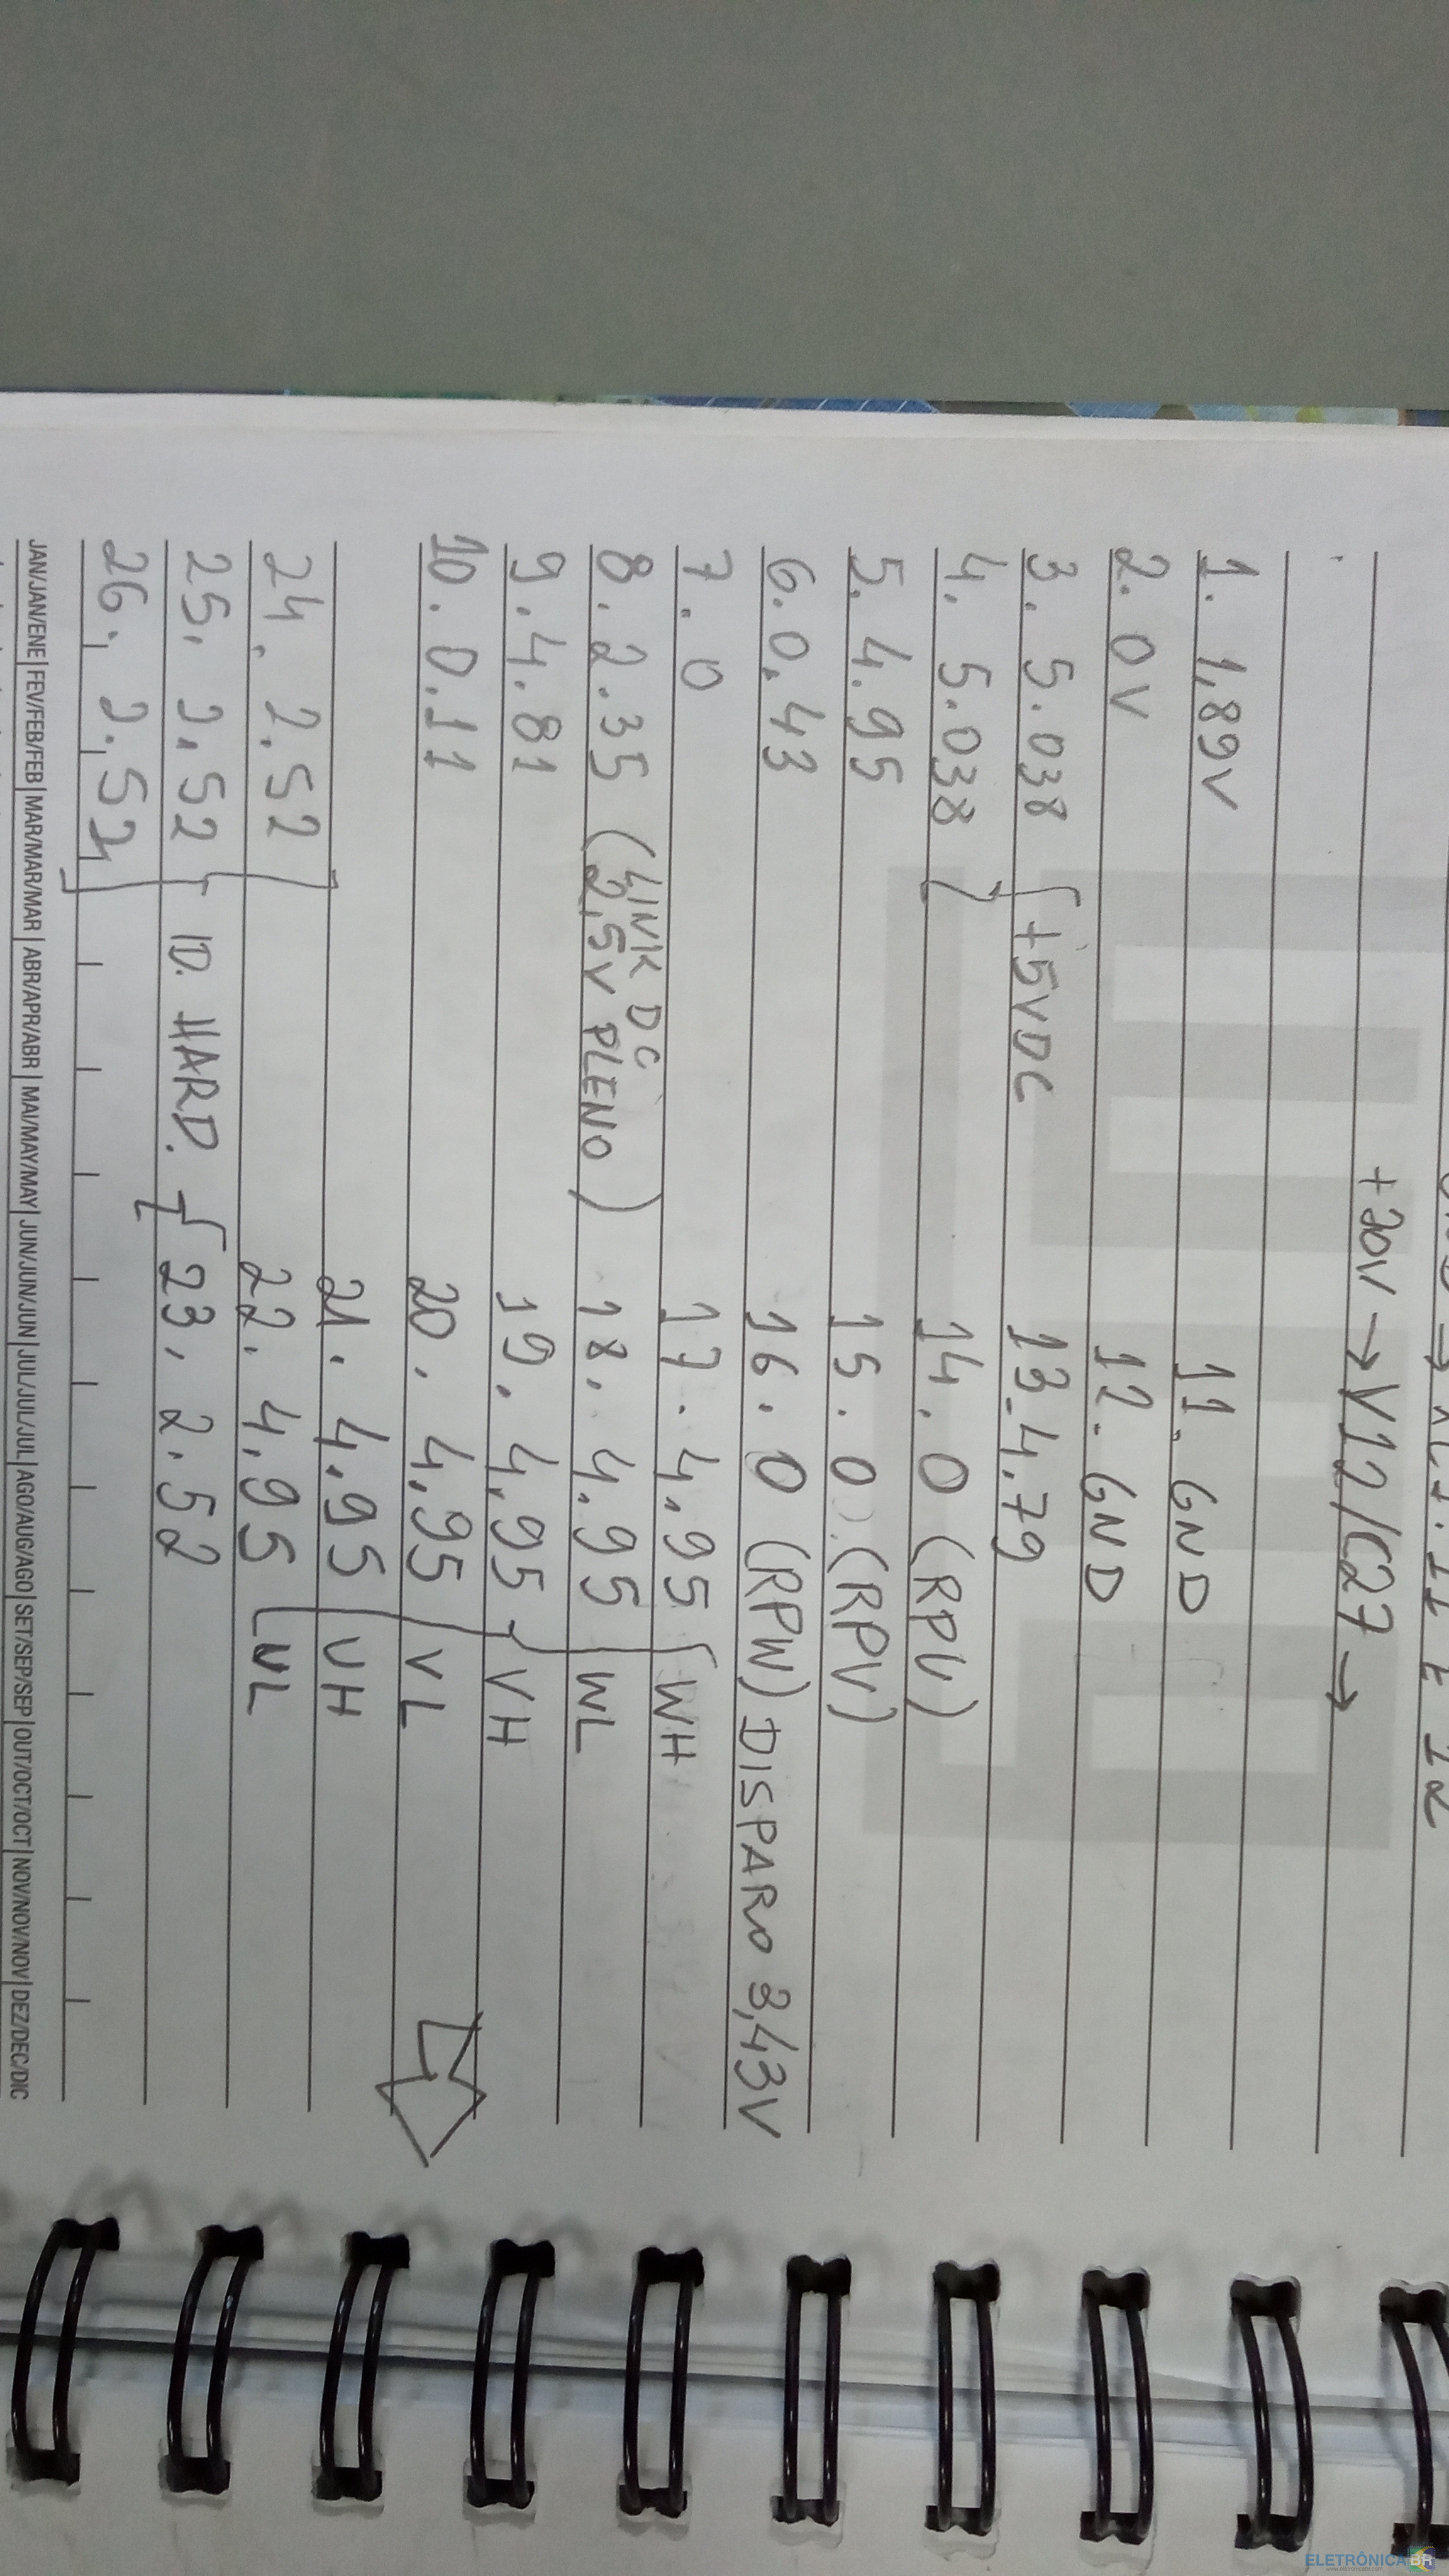 +20V → V12/C27 →
1. 1,89V 11. GND
2. 0V 12. GND
3. 5.038 +5VDC 13. 4,79
4. 5.038 14. 0 (RPU)
5. 4.95 15. 0 (RPV)
6. 0,43 16. 0 (RPW) DISPARO 3,43V
7. 0 17. 4,95 WH
8. 2.35 (LINK DC 2,5V PLENO) 18. 4.95 WL
9. 4.81 19. 4,95 VH
10. 0.11 20. 4,95 VL
21. 4.95 UH
24. 2.52 22. 4,95 UL
25. 2.52 ID. HARD. 23. 2.52
26. 2.52
JAN/JAN/ENE | FEV/FEB/FEB | MAR/MAR/MAR | ABR/APR/ABR | MAI/MAY/MAY | JUN/JUN/JUN | JUL/JUL/JUL | AGO/AUG/AGO | SET/SEP/SEP | OUT/OCT/OCT | NOV/NOV/NOV | DEZ/DEC/DIC
ELETRÔNICA BR